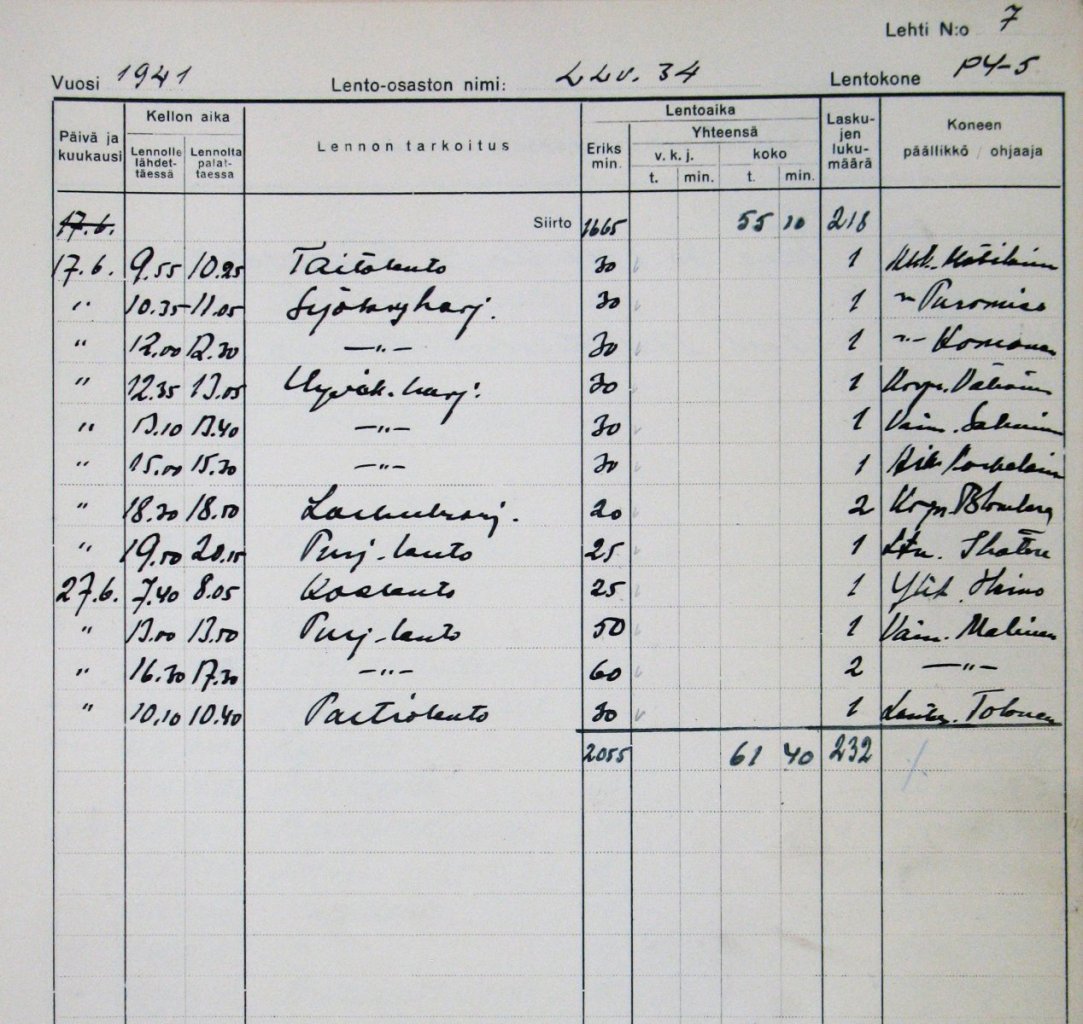 Lehti N:o 7
Vuosi 1941 Lento-osaston nimi: LLv. 34 Lentokone PY-5
Päivä ja kuukausi Kellon aika Lennolle lähdettäessä Lennolta palattaessa Lennon tarkoitus Lentoaika Eriks min. Yhteensä v. k. j. t. min. koko t. min. Laskujen lukumäärä Koneen päällikkö / ohjaaja
17.6. Siirto 1665 55 10 218
17.6. 9.55 10.25 Taitolento 30 1
" 10.35 11.05 30 1 Puromies
" 12.00 12.30 —"— 30 1 —"—
" 12.35 13.05 Hyväk. harj. 30 1
" 13.10 13.40 —"— 30 1 Vääp. Salminen
" 15.00 15.30 —"— 30 1
" 18.30 18.50 Laskuharj. 20 2 Korpr. Blomberg
" 19.50 20.15 Purj-lento 25 1
27.6. 7.40 8.05 Koelento 25 1
" 13.00 13.50 Purj-lento 50 1 Vääp. Malinen
" 16.30 17.30 —"— 60 2 —"—
" 10.10 10.40 Partiolento 30 1 Tolonen
2055 61 40 232